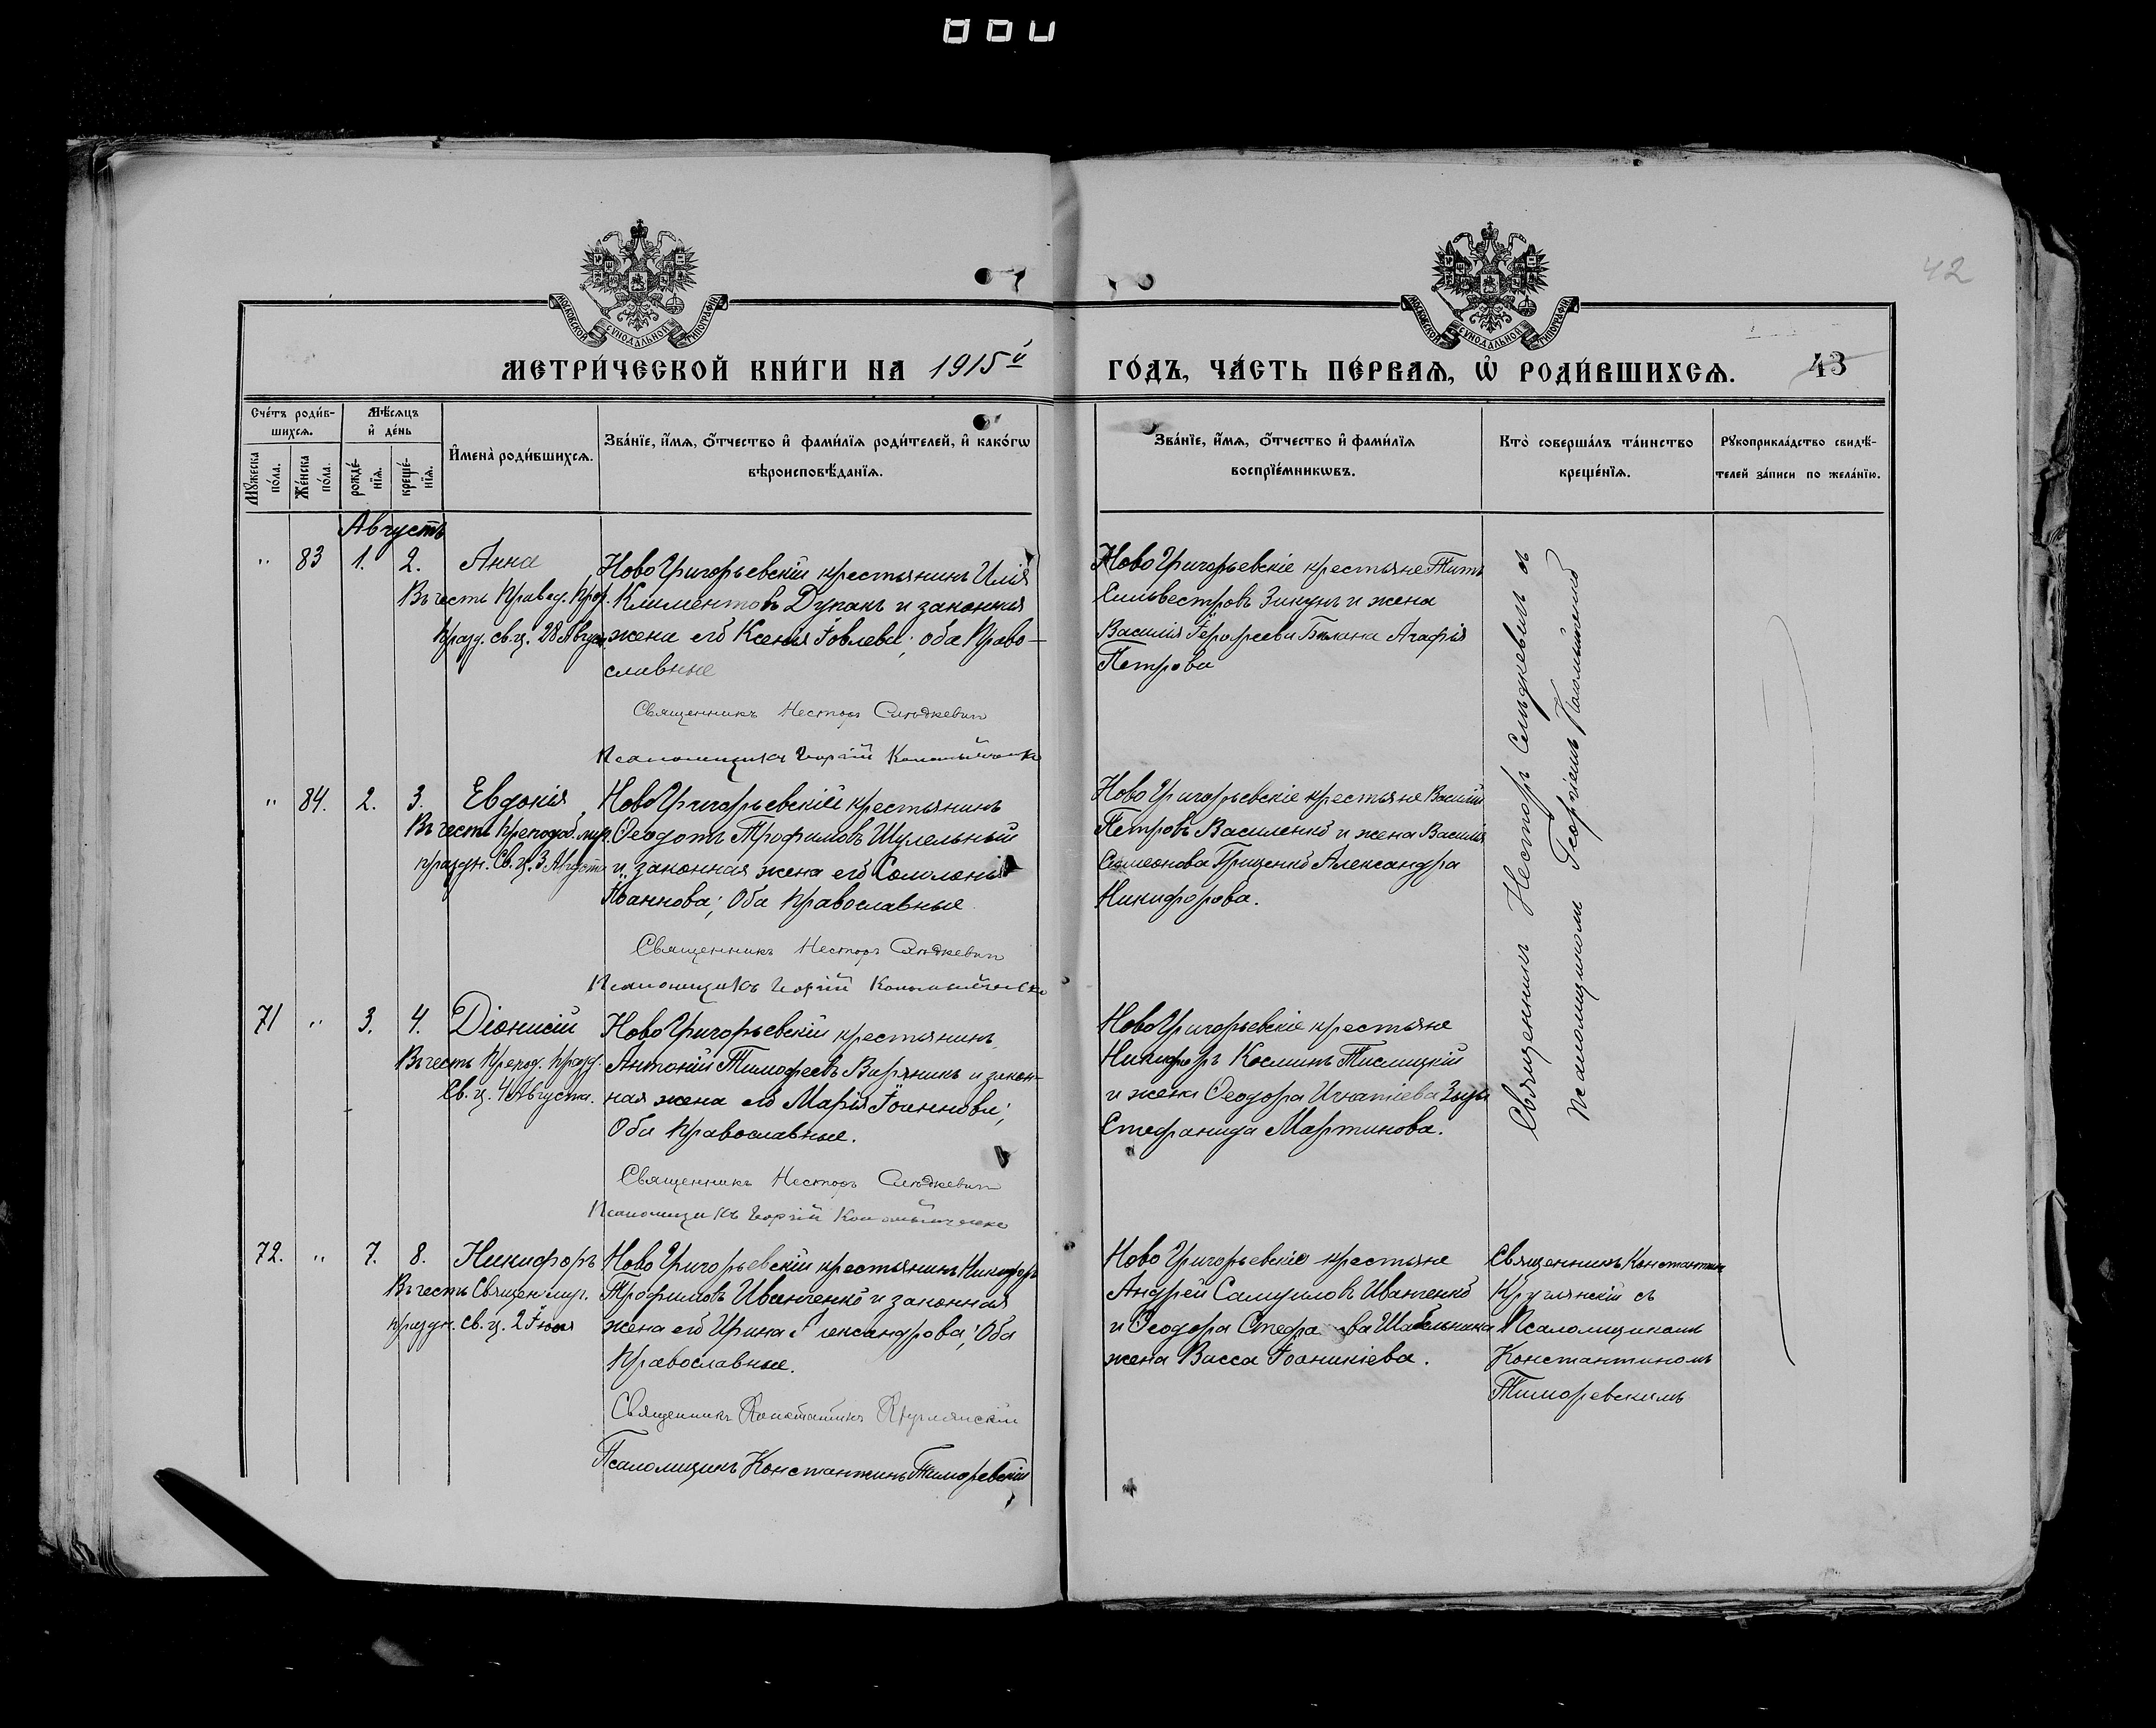 42
МОСКОВСКОЙ СУНОДАЛЬНОЙ ТИПОГРАФІИ
МОСКОВСКОЙ СУНОДАЛЬНОЙ ТИПОГРАФІИ
МЕТРИ́ЧЕСКОЙ КНИ́ГИ НА 1915й ГОДЪ, ЧА́СТЬ ПЕ́РВАѦ, Ѡ РОДИ́ВШИХСѦ. 43
Сче́тъ роди́в-
шихсѧ.
Мꙋжеска по́ла.
Же́нска по́ла.
Мѣ́сѧцъ и҆ де́нь
рожде́-нїѧ.
креще́-нїѧ.
И҆мена̀ роди́вшихсѧ.
Зва́нїе, и҆́мѧ, ѻ҆́тчество и҆ фами́лїѧ роди́телей, и҆ како́гѡ
вѣроисповѣ́данїѧ.
Зва́нїе, и҆́мѧ, ѻ҆́тчество и҆ фами́лїѧ
воспрїе́мникѡвъ.
Кто̀ соверша́лъ та́инство
креще́нїѧ.
Рꙋкоприкла́дство свидѣ́-
телей за́писи по жела́нїю.
Августъ
" 83 1. 2. Анна
Въ честь Правед. Прор.
празд. св. ц. 28 Август
Ново Григорьевскій крестьянинъ Илія
Климентовъ Дупакъ и законная
жена его Ксенія Іовлева; оба Право-
славные
Священникъ Несторъ
Псаломщикъ Георгій
Ново Григорьевскіе крестьяне Титъ
Сильвестровъ Зикунъ и жена
Василія Агафія
Петрова
" 84. 2. 3. Евдокія
Въ честь преподоб. муч.
праздн. Св. ц. 3 Августа
Ново Григорьевскій крестьянинъ
Ѳеодотъ Трофимовъ Шулельный
и законная жена его Соломонія
Іоаннова; Оба православные
Священникъ Несторъ
Псаломщикъ Георгій
Ново Григорьевскіе крестьяне Василій
Петровъ Василенко и жена Василія
Симеонова Грищенко Александра
Никифорова.
71 " 3. 4. Діонисій
Въ честь препод. празд.
Св. ц. 4 Августа.
Ново Григорьевскій крестьянинъ
Антоній Тимофеевъ Варяникъ и закон-
ная жена его Марія Іоаннова;
Оба православные.
Священникъ Несторъ
Псаломщикъ Георгій
Ново Григорьевскіе крестьяне
Никифоръ Косминъ Тислицкій
и жена Ѳеодора Игнатіева
Стефанида Мартинова.
Священникъ Несторъ съ
псаломщикомъ Георгіемъ
72. " 7. 8. Никифоръ
Въ честь Священ муч.
праздн. св. ц. 2 Іюня
Ново Григорьевскій крестьянинъ Никифоръ
Трофимовъ Иванченко и законная
жена его Ирина Александрова; Оба
православные.
Священникъ Константинъ Круглянскій
Псаломщикъ Константинъ Тиморевскій
Ново Григорьевскіе крестьяне
Андрей Самуиловъ Иванченко
и Ѳеодора Шабельника
жена Васса Іоаникіева.
Священникъ Константинъ
Круглянскій съ
Псаломщикомъ
Константиномъ
Тиморевскимъ